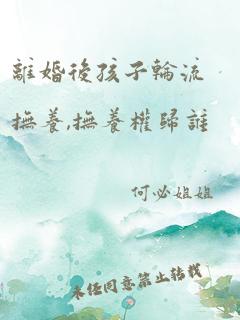 離婚後孩子輪流
撫養,撫養權歸誰
何必姐姐
未經同意禁止轉載